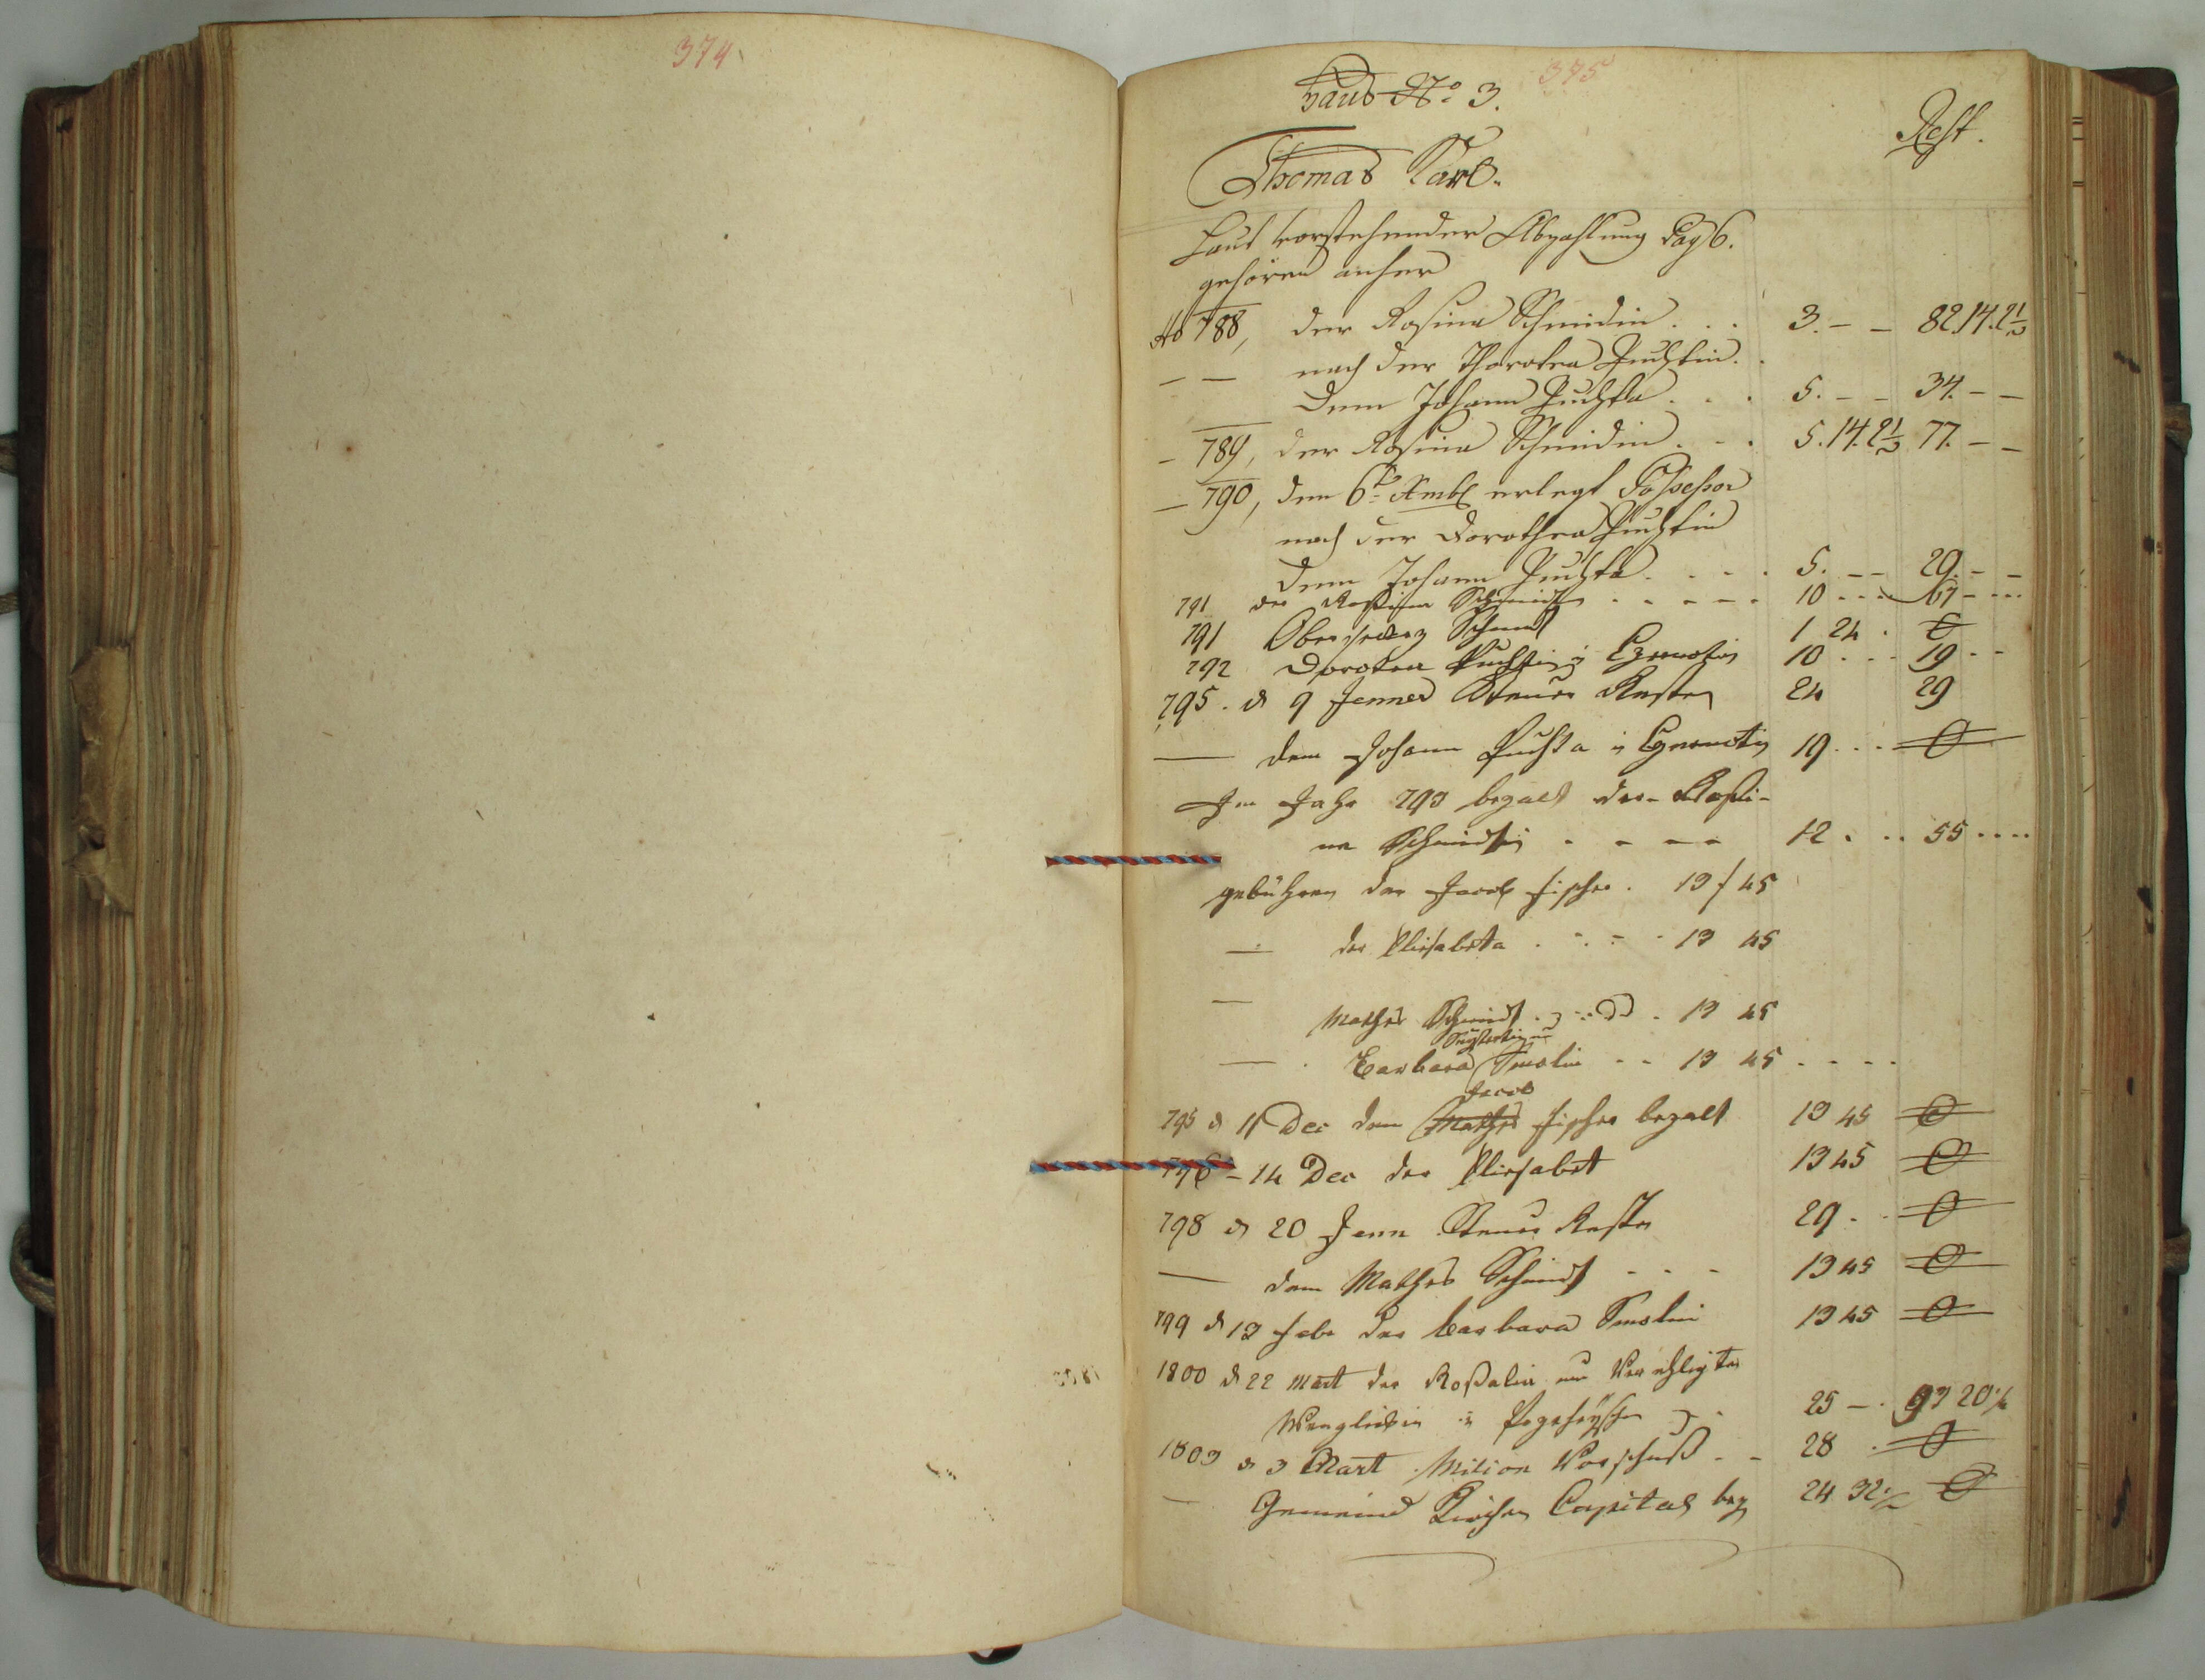 374
375
Haus No 3.
Rest.
Thomas Karl.
Laut vorstehender Abzahlung Pag 6.
gehören anher
Ao 788, der Rosina Schmidin . . . 3. – – 82.14.2⅓
– – nach der Thorotea Puchtin . .
dem Johann Puchta . . . 5. – – 34. – –
– 789, der Rosina Schmidin . . . 5.14.2⅓ 77. – –
– 790, den 6t Xmb erlegt Possessor
nach der Dorothea Puchtin
dem Johann Puchta . . . . 5. – – 29. – –
791 der Rosina Schmidt . . . . . 10 . . . 67 – . . .
791 Schmidt 1 24 . 0
792 Dorotea Puchtin 10 . . . 19 . .
795 . d 9 Jenner Steuer Resten 24 29
— dem Johann Puchta 19 . . . 0
Im Jahr 793 bezalt der Rosi-
na Schmidtin . . . . 12 . . . 55 . . . .
gebühren der Jacob Fischer . 13 f 45
— der Elisabeta . . . . 13 45
— Mathes Schmidt . 13 45
— . Barbara Smolin . . 13 45 . . . .
Jacob
795 d 11 Dec dem Mathes Fischer bezalt 13 45 0
796 – 14 Dec der Elisabet 13 45 0
798 d 20 Jenn Steuer Resten 29 . . 0
— dem Mathes Schmidt . . . 13 45 0
799 d 13 Febr der Barbara Smolin 13 45 0
1800 d 22 Mart der Rosalia
25 – . 93 20
1803 d 3 Mart . Vorschuß . – 28 . 0
— Gemeind Kirchen Capital bez 24 32 0